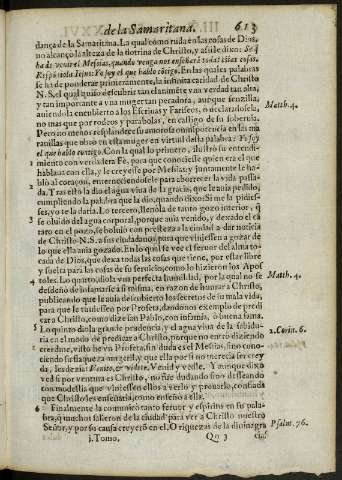 de la Samaritana. 613
dança de la Samaritana. La qual como ruda en las cosas de Dios,
no alcançó la alteza de la dotrina de Christo, y assi le dixo: Se q̃
ha de venir el Mesias, quando venga nos enseñará todas estas cosas.
Respondiola Iesus: Yo soy el que hablo cõtigo. En las quales palabras
se ha de ponderar primeramente, la infinita caridad de Christo
N. S. el qual quiso descubrir tan claramẽte vna verdad tan alta,
y tan importante a vna muger tan pecadora, aunque senzilla,
auiendola encubierto a los Escriuas y Fariseos, o declarandosela,
no mas que por rodeos y parabolas, en castigo de su soberuia.
Matth. 4.
Pero no menos resplandece su amorosa omnipotencia en las ma
rauillas que obró en esta muger en virtud desta palabra: Yo soy
el que hablo contigo. Con la qual lo primero, ilustró su entendi-
miento con verdadera Fè, para que conociesse quien era el que
hablaua con ella, y le creyesse por Mesias: y juntamente la ha-
bló al coraçon, enterneciendole para aborrecer la vida passa-
da. Tras esto la dio el agua viua de la gracia, que le auia pedido,
cumpliendo la palabra que la dio, quando dixo: Si me la pidies-
ses, yo te la daria. Lo tercero, llenóla de tanto gozo interior, q̃
se oluidó del agua corporal, porque auia venido, y dexado el cã
taro en el pozo, se boluió con presteza a la ciudad a dar noticia
de Christo N. S. a sus ciudadanos, para que viniessen a gozar de
lo que ella auia gozado. En lo qual se vee el feruor del alma to-
cada de Dios, que dexa todas las cosas que tiene, por estar libre
y suelta para las cosas de su seruicio, como lo hizieron los Apos
toles. Lo quarto, diola vna perfecta humildad, por la qual no se
Matth. 4.
desdeño de infamarse a si misma, en razon de honrar a Christo,
publicando que le auia descubierto los secretos de su mala vida,
para que le tuuiessen por Profeta, dandonos exemplo de predi
car a Christo, como dize san Pablo, con infamia, o buena fama.
Lo quinto diola gran prudencia, y el agua viua de la sabidu-
2. Corin. 6.
ria en el modo de predicar a Christo, porque no entró diziendo
creedme, visto he vn Profeta, sin duda es el Mesias, sino cono-
ciendo su flaqueza mugeril, y que ella por si no merecia ser crey
da, les dezia: Venite, & videte. Venid y vedle. Y aunque dixo
ved si por ventura es Christo, no fue dudando sino desseando
con modestia que viniessen ellos a verlo y prouarlo, confiada
que Christo les enseñaria, como enseñó a ella.
6 Finalmente la comunicó tanto feruor y espiritu en su pala-
bra, q̃ muchos salieron de la ciudad para ver a Christo nuestro
Señor, y por su causa creyerõ en el. O riquezas de la diuina gra
Psalm. 76.
1. Tomo. Qq 3 cia,